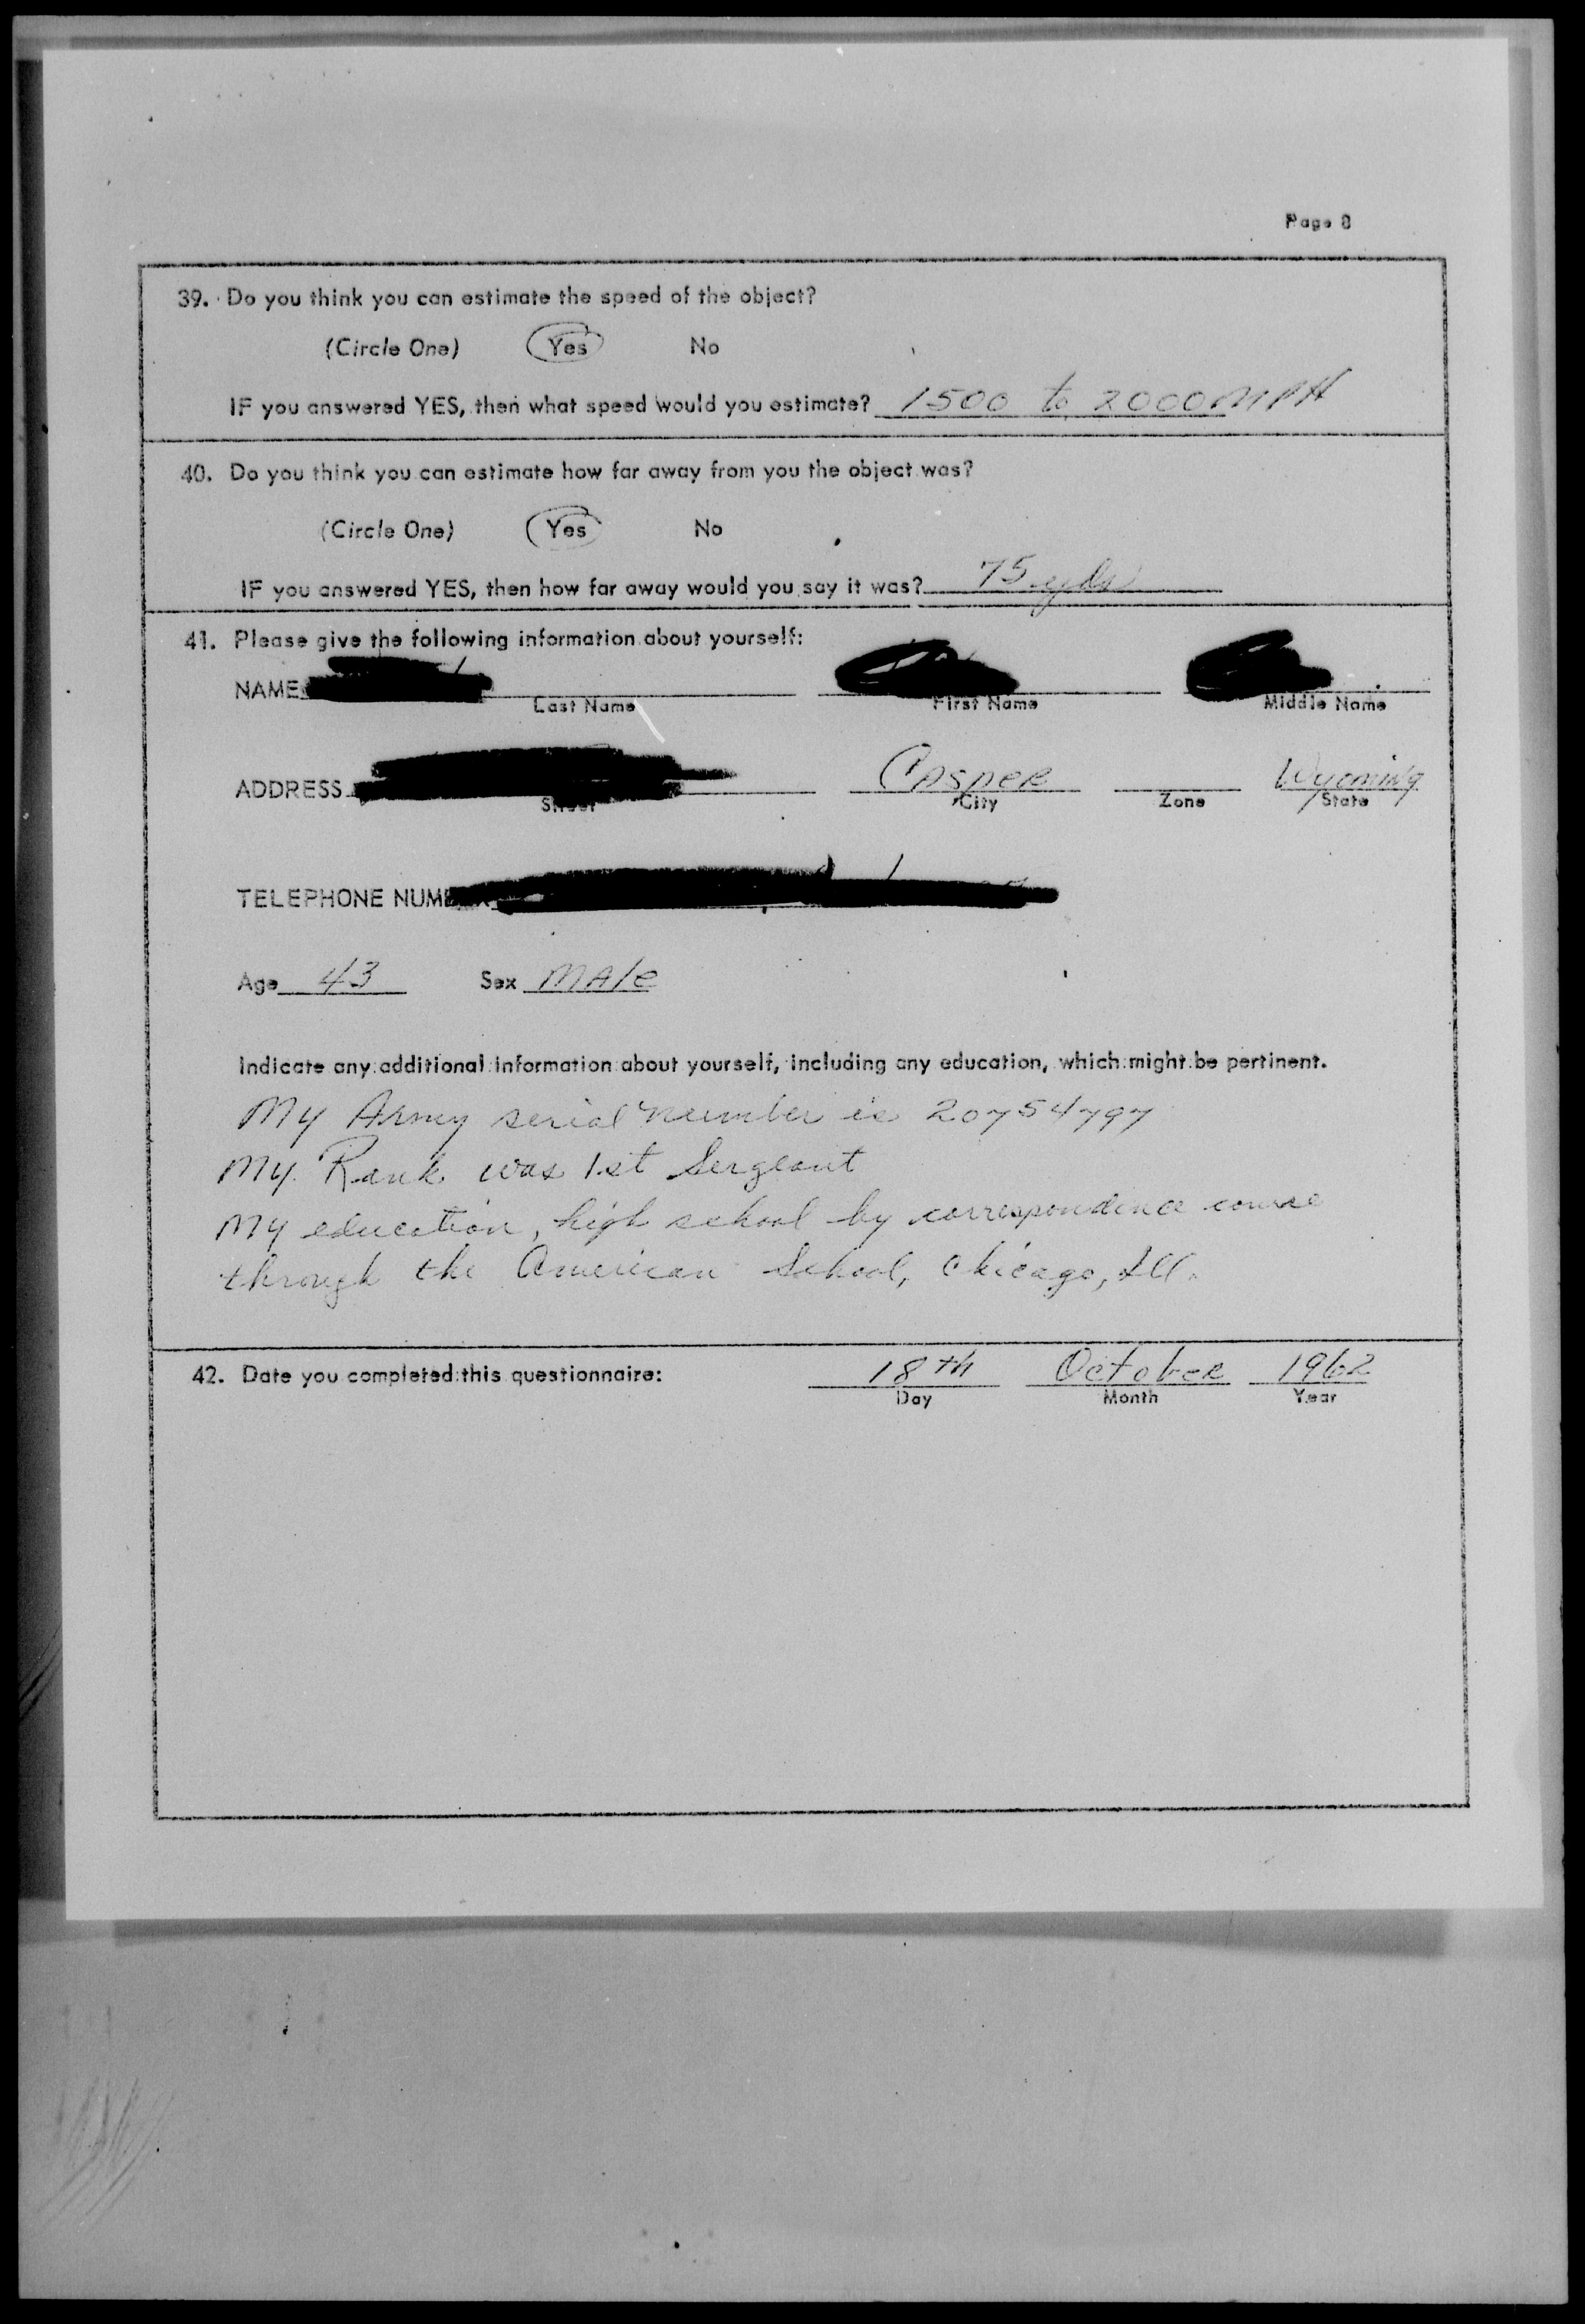 Page 8
39. Do you think you can estimate the speed of the object?
(Circle One) Yes No
IF you answered YES, then what speed would you estimate? 1500 to 2000 MPH
40. Do you think you can estimate how far away from you the object was?
(Circle One) Yes No
IF you answered YES, then how far away would you say it was? 75 yds
41. Please give the following information about yourself:
NAME
Last Name First Name Middle Name
ADDRESS Casper Wyoming
Street City Zone State
TELEPHONE NUMBER
Age 43 Sex MAle
Indicate any additional information about yourself, including any education, which might be pertinent.
My Army serial number is 20754797
My Rank was 1st Sergeant
My education, high school by correspondence course
through the American School, Chicago, Ill.
42. Date you completed this questionnaire: 18th October 1962
Day Month Year